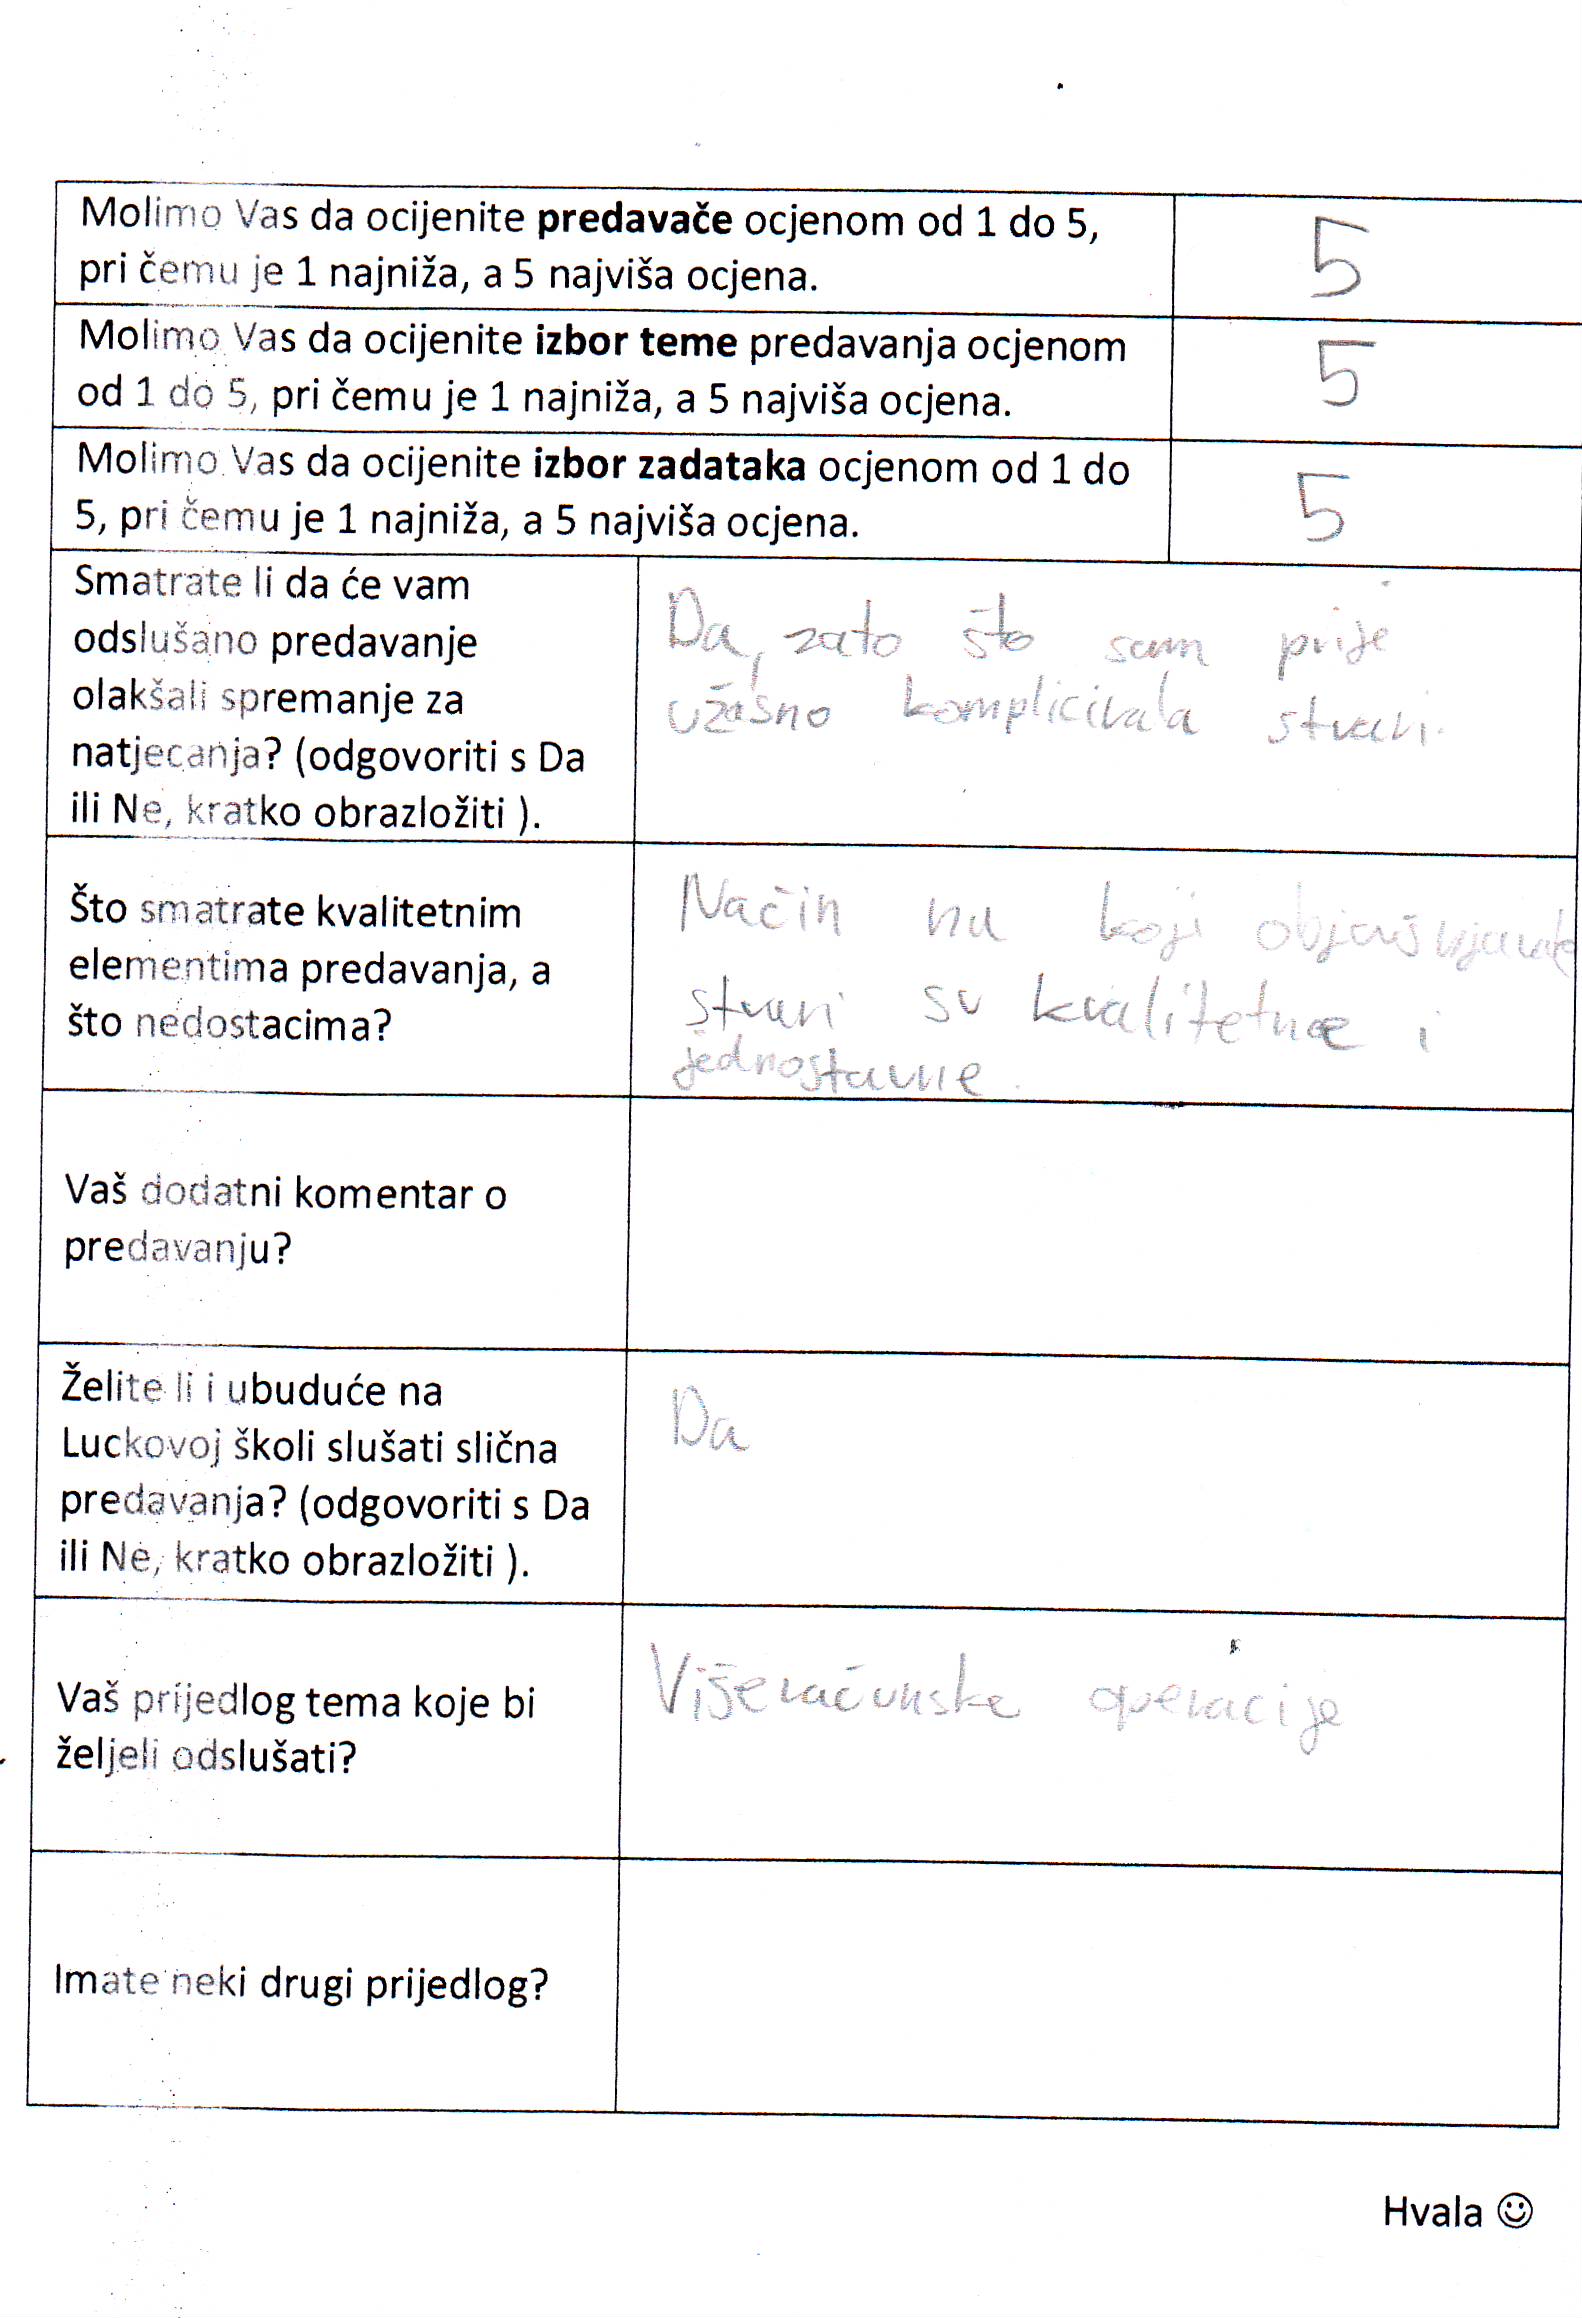 Molimo Vas da ocijenite predavače ocjenom od 1 do 5,
pri čemu je 1 najniža, a 5 najviša ocjena.
5
Molimo Vas da ocijenite izbor teme predavanja ocjenom
od 1 do 5, pri čemu je 1 najniža, a 5 najviša ocjena.
5
Molimo Vas da ocijenite izbor zadataka ocjenom od 1 do
5, pri čemu je 1 najniža, a 5 najviša ocjena.
5
Smatrate li da će vam
odslušano predavanje
olakšali spremanje za
natjecanja? (odgovoriti s Da
ili Ne, kratko obrazložiti ).
Da, zato što sam prije
užasno komplicirala stvari.
Što smatrate kvalitetnim
elementima predavanja, a
što nedostacima?
Način na koji objašnjavate
stvari su kvalitetne i
jednostavne.
Vaš dodatni komentar o
predavanju?
Želite li i ubuduće na
Luckovoj školi slušati slična
predavanja? (odgovoriti s Da
ili Ne, kratko obrazložiti ).
Da
Vaš prijedlog tema koje bi
željeli odslušati?
Višeračunske operacije
Imate neki drugi prijedlog?
Hvala ☺